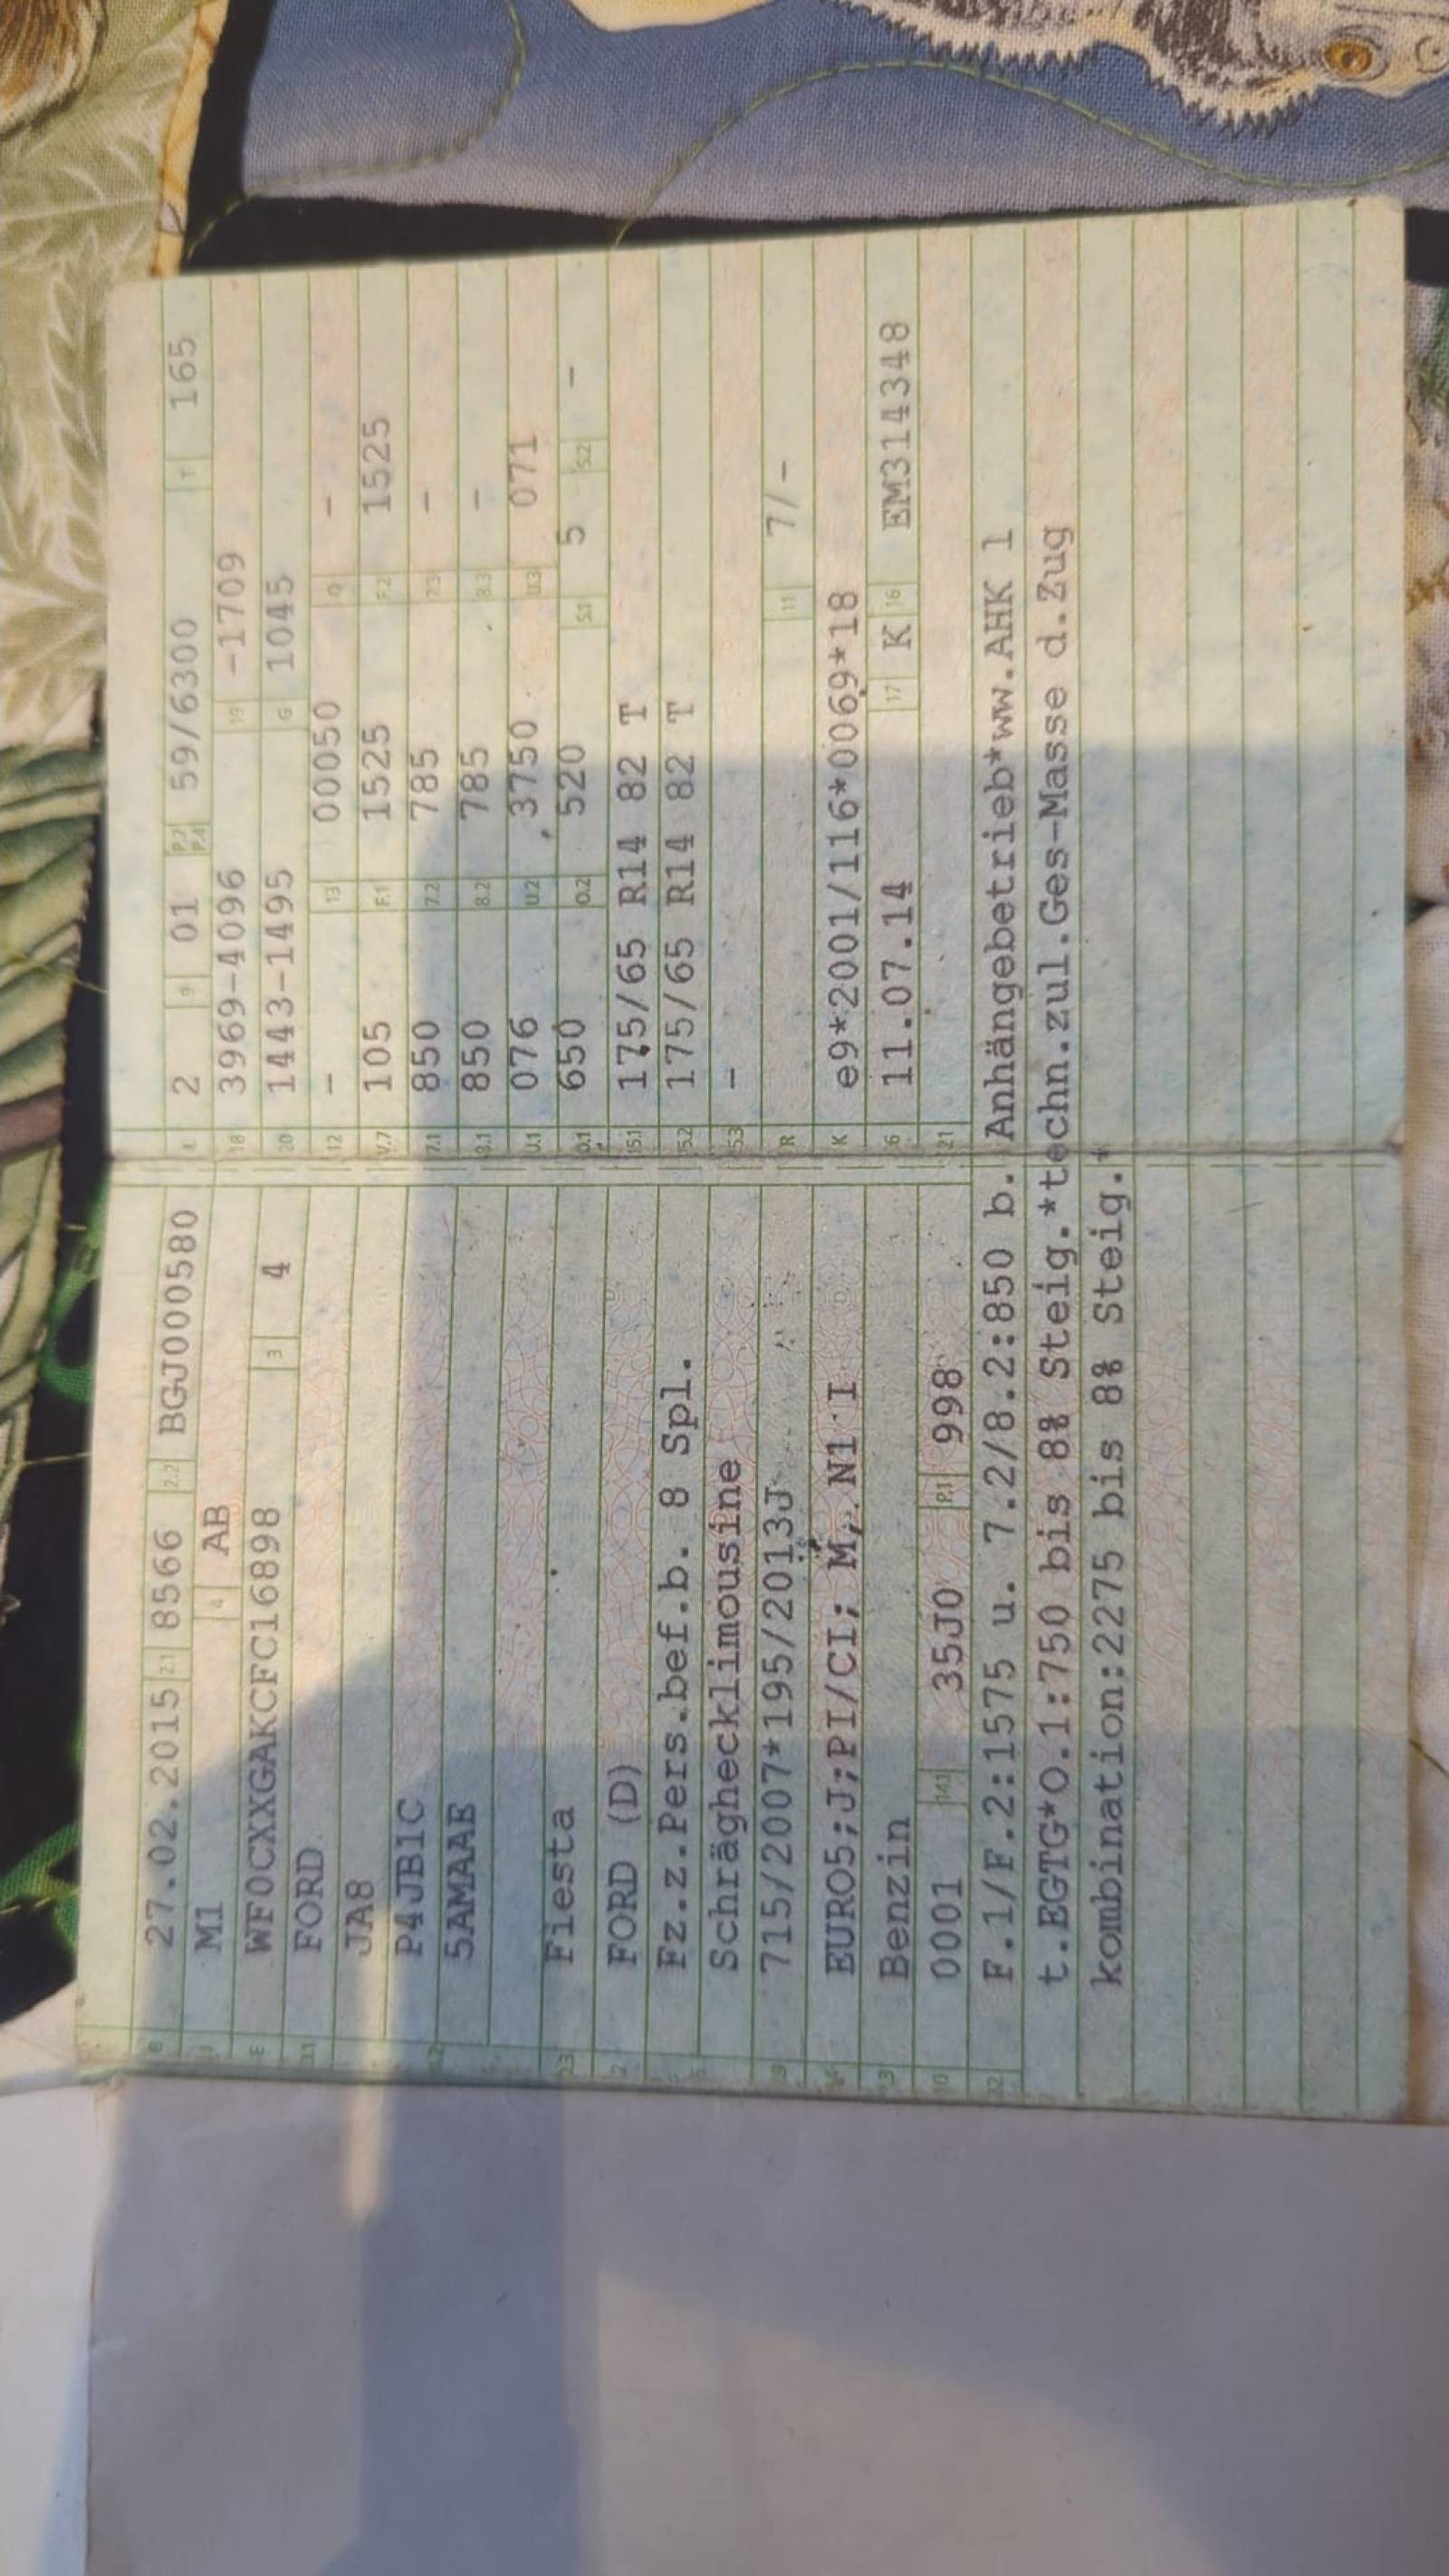 B 27.02.2015 2.1 8566 2.2 BGJ000580
J M1 4 AB
E WF0CXXGAKCFC16898 3 4
D.1 FORD
JA8
D.2 P4JB1C
5AMAAE
D.3 Fiesta
2 FORD (D)
5 Fz.z.Pers.bef.b. 8 Spl.
Schräghecklimousine
V.9 715/2007*195/2013J
14 EURO5;J;PI/CI; M, N1 I
P.3 Benzin
10 0001 14.1 35J0 P.1 998
L 2 9 01 P.2 P.4 59/6300 T 165
18 3969-4096 19 -1709
20 1443-1495 G 1045
12 - 13 00050 Q -
V.7 105 F.1 1525 F.2 1525
7.1 850 7.2 785 7.3 -
8.1 850 8.2 785 8.3 -
U.1 076 U.2 3750 U.3 071
O.1 650 O.2 520 S.1 5 S.2 -
15.1 175/65 R14 82 T
15.2 175/65 R14 82 T
15.3 -
R 11 7/-
K e9*2001/116*0069*18
6 11.07.14 17 K 16 EM314348
21
22 F.1/F.2:1575 u. 7.2/8.2:850 b. Anhängebetrieb*ww.AHK l
t.EGTG*O.1:750 bis 8% Steig.*techn.zul.Ges-Masse d.Zug
kombination:2275 bis 8% Steig.*